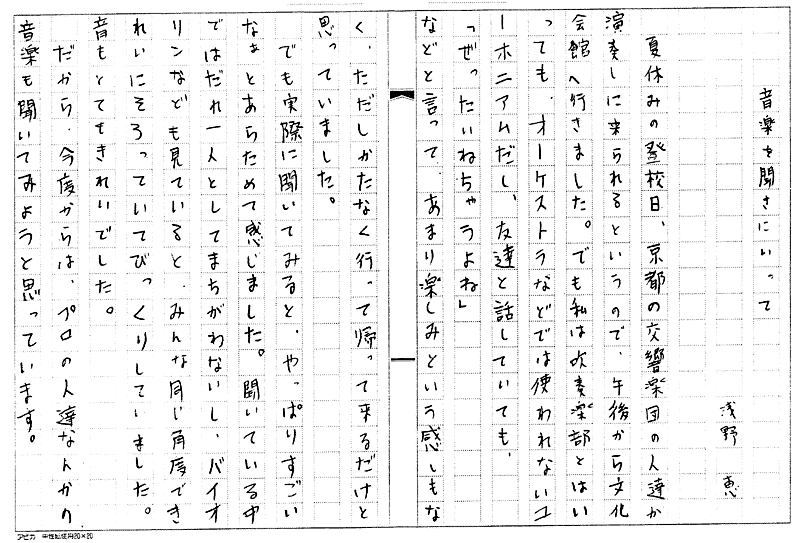 音楽を聞きにいって
浅野 恵
夏休みの登校日、京都の交響楽団の人達が
演奏しに来られるというので、午後から文化
会館へ行きました。でも私は吹奏楽部とはい
っても、オーケストラなどでは使われないユ
ーホニアムだし、友達と話していても、
「ぜったいねちゃうよね」
などと言って、あまり楽しみという感じもな
く、ただしかたなく行って帰って来るだけと
思っていました。
でも実際に聞いてみると、やっぱりすごい
なぁとあらためて感じました。聞いている中
ではだれ一人としてまちがわないし、バイオ
リンなども見ていると、みんな同じ角度でき
れいにそろっていてびっくりしていました。
音もとてもきれいでした。
だから、今度からは、プロの人達なんかの
音楽も聞いてみようと思っています。
アピカ 中性紙使用20×20